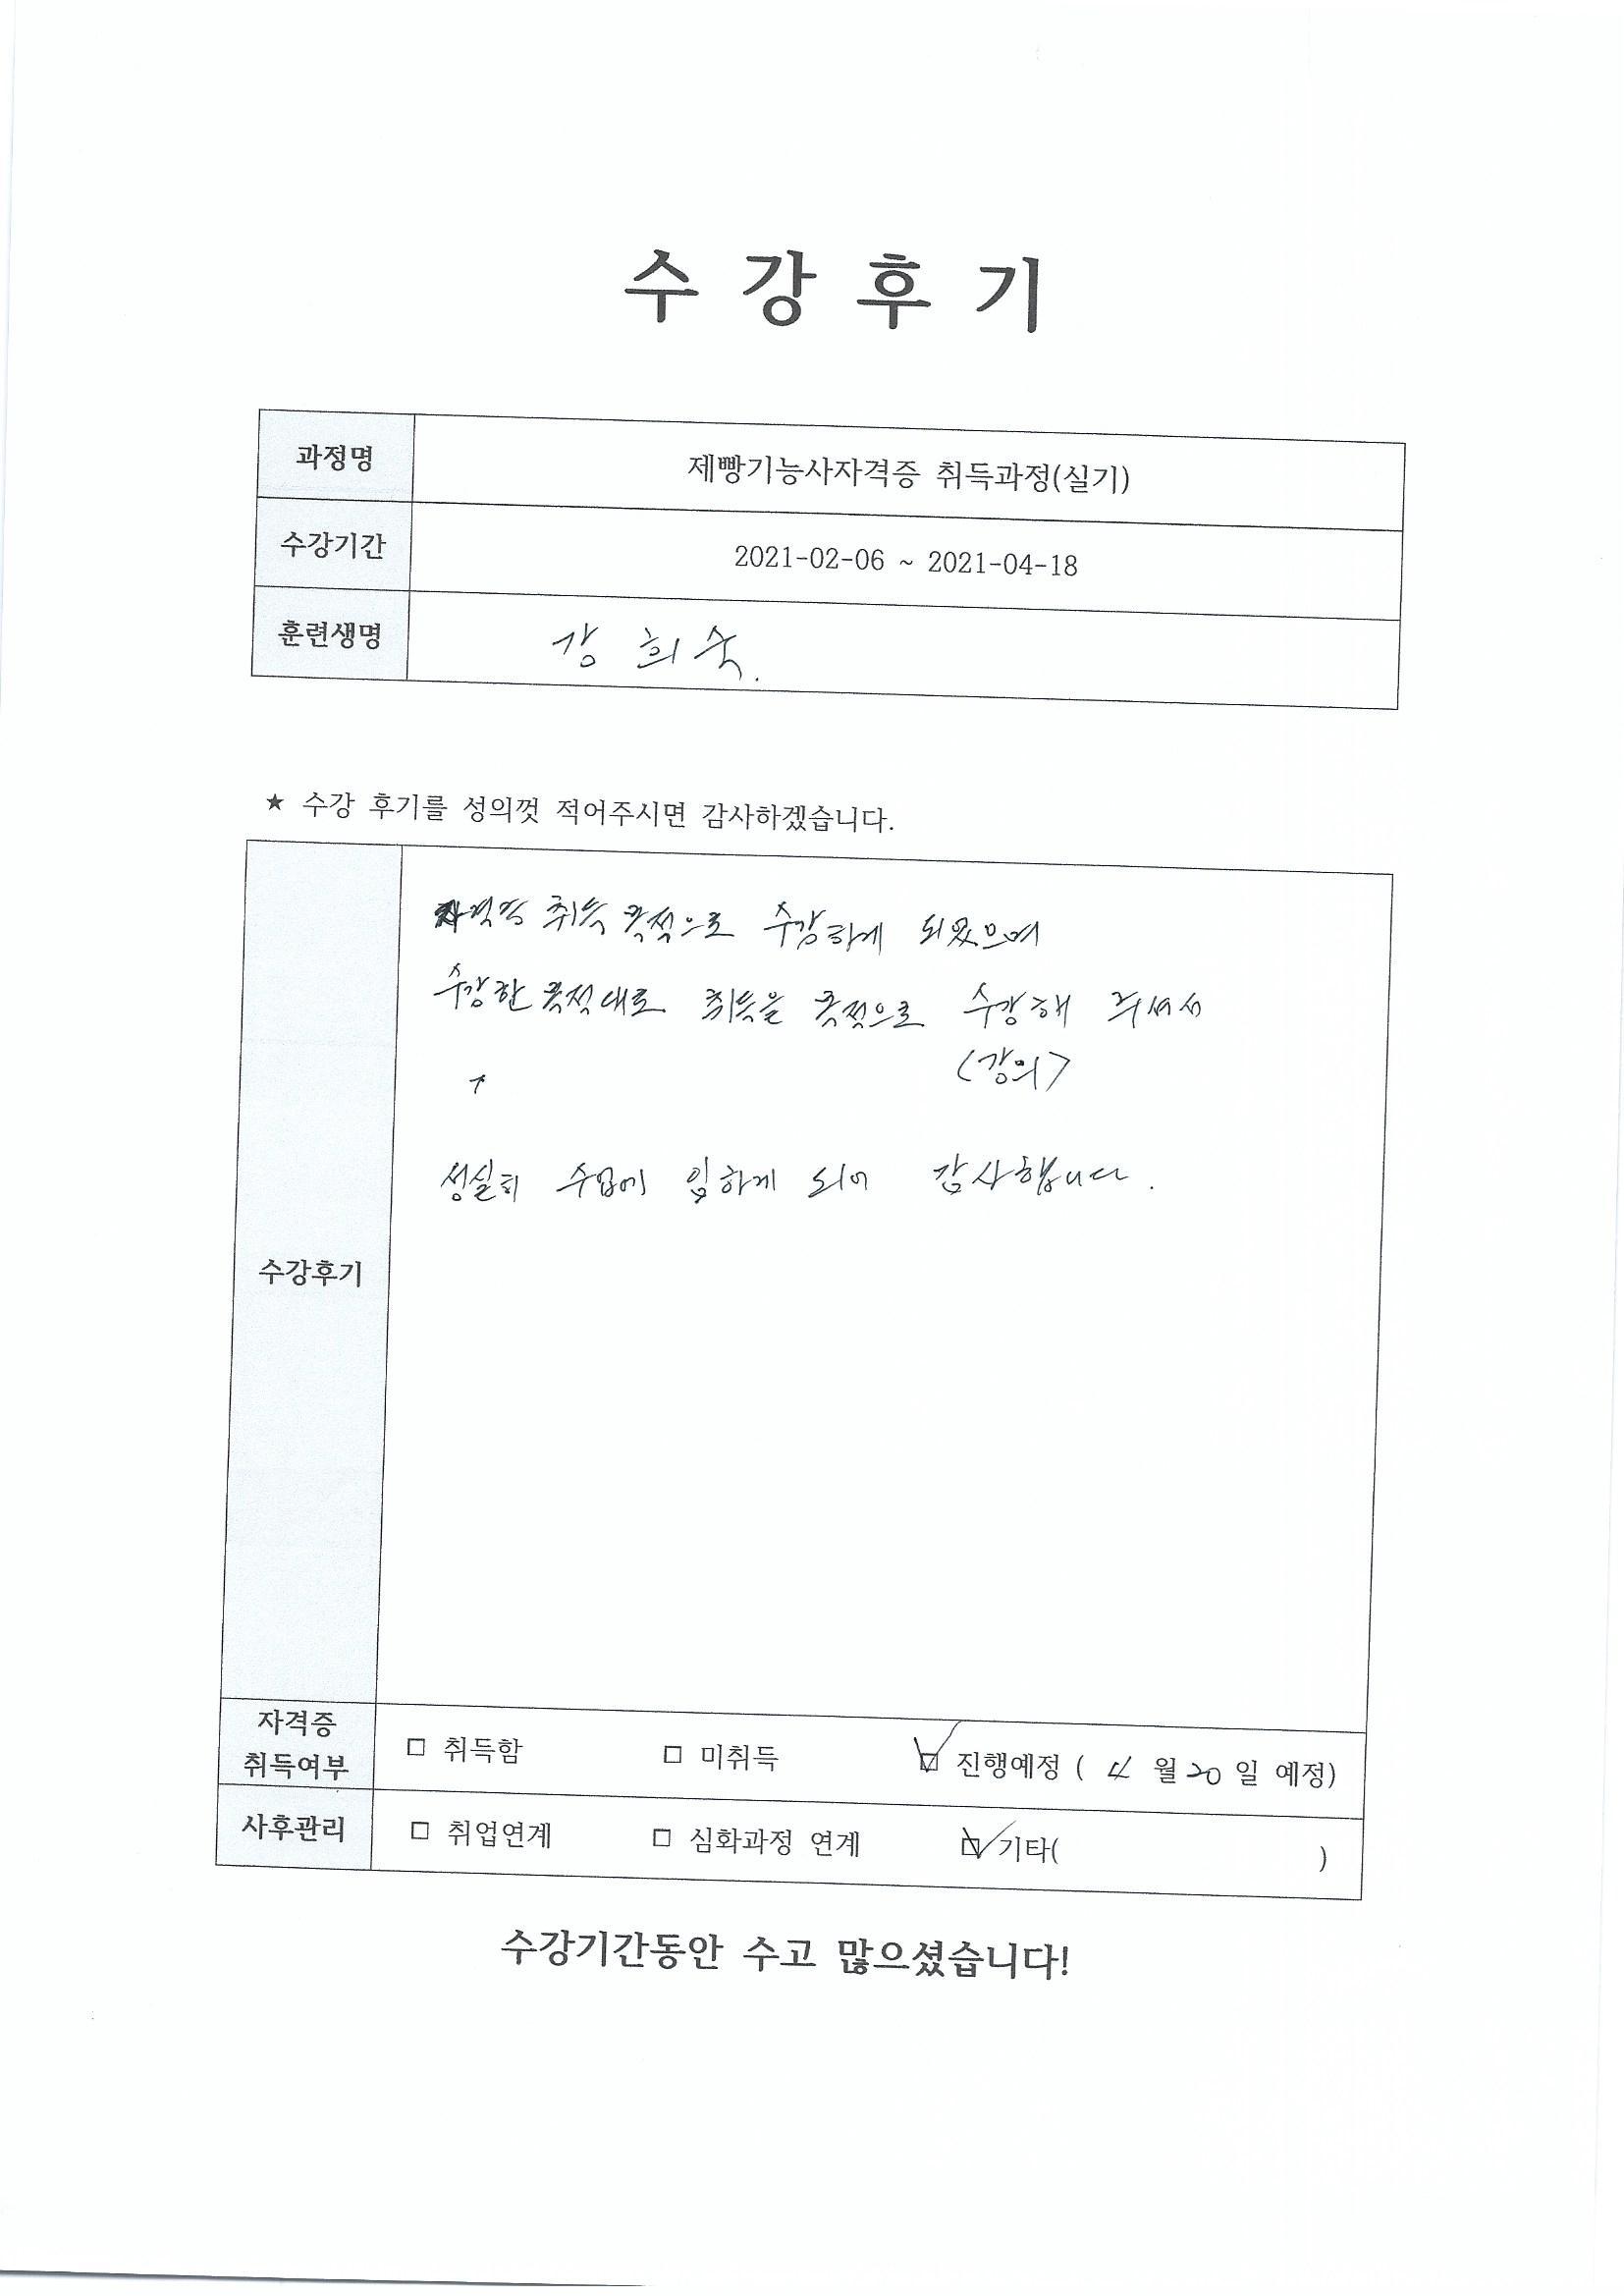 수 강 후 기
과정명 제빵기능사자격증 취득과정(실기)
수강기간 2021-02-06 ~ 2021-04-18
훈련생명 강 희 숙.
★ 수강 후기를 성의껏 적어주시면 감사하겠습니다.
자격증 취득 목적으로 수강하게 되었으며
수강한 목적대로 취득을 목적으로 수강해 주셔서
(강의)
성실히 수업에 임하게 되어 감사합니다.
수강후기
자격증
취득여부 □ 취득함 □ 미취득 ☑ 진행예정 ( 4 월 20 일 예정)
사후관리 □ 취업연계 □ 심화과정 연계 ☑ 기타( )
수강기간동안 수고 많으셨습니다!